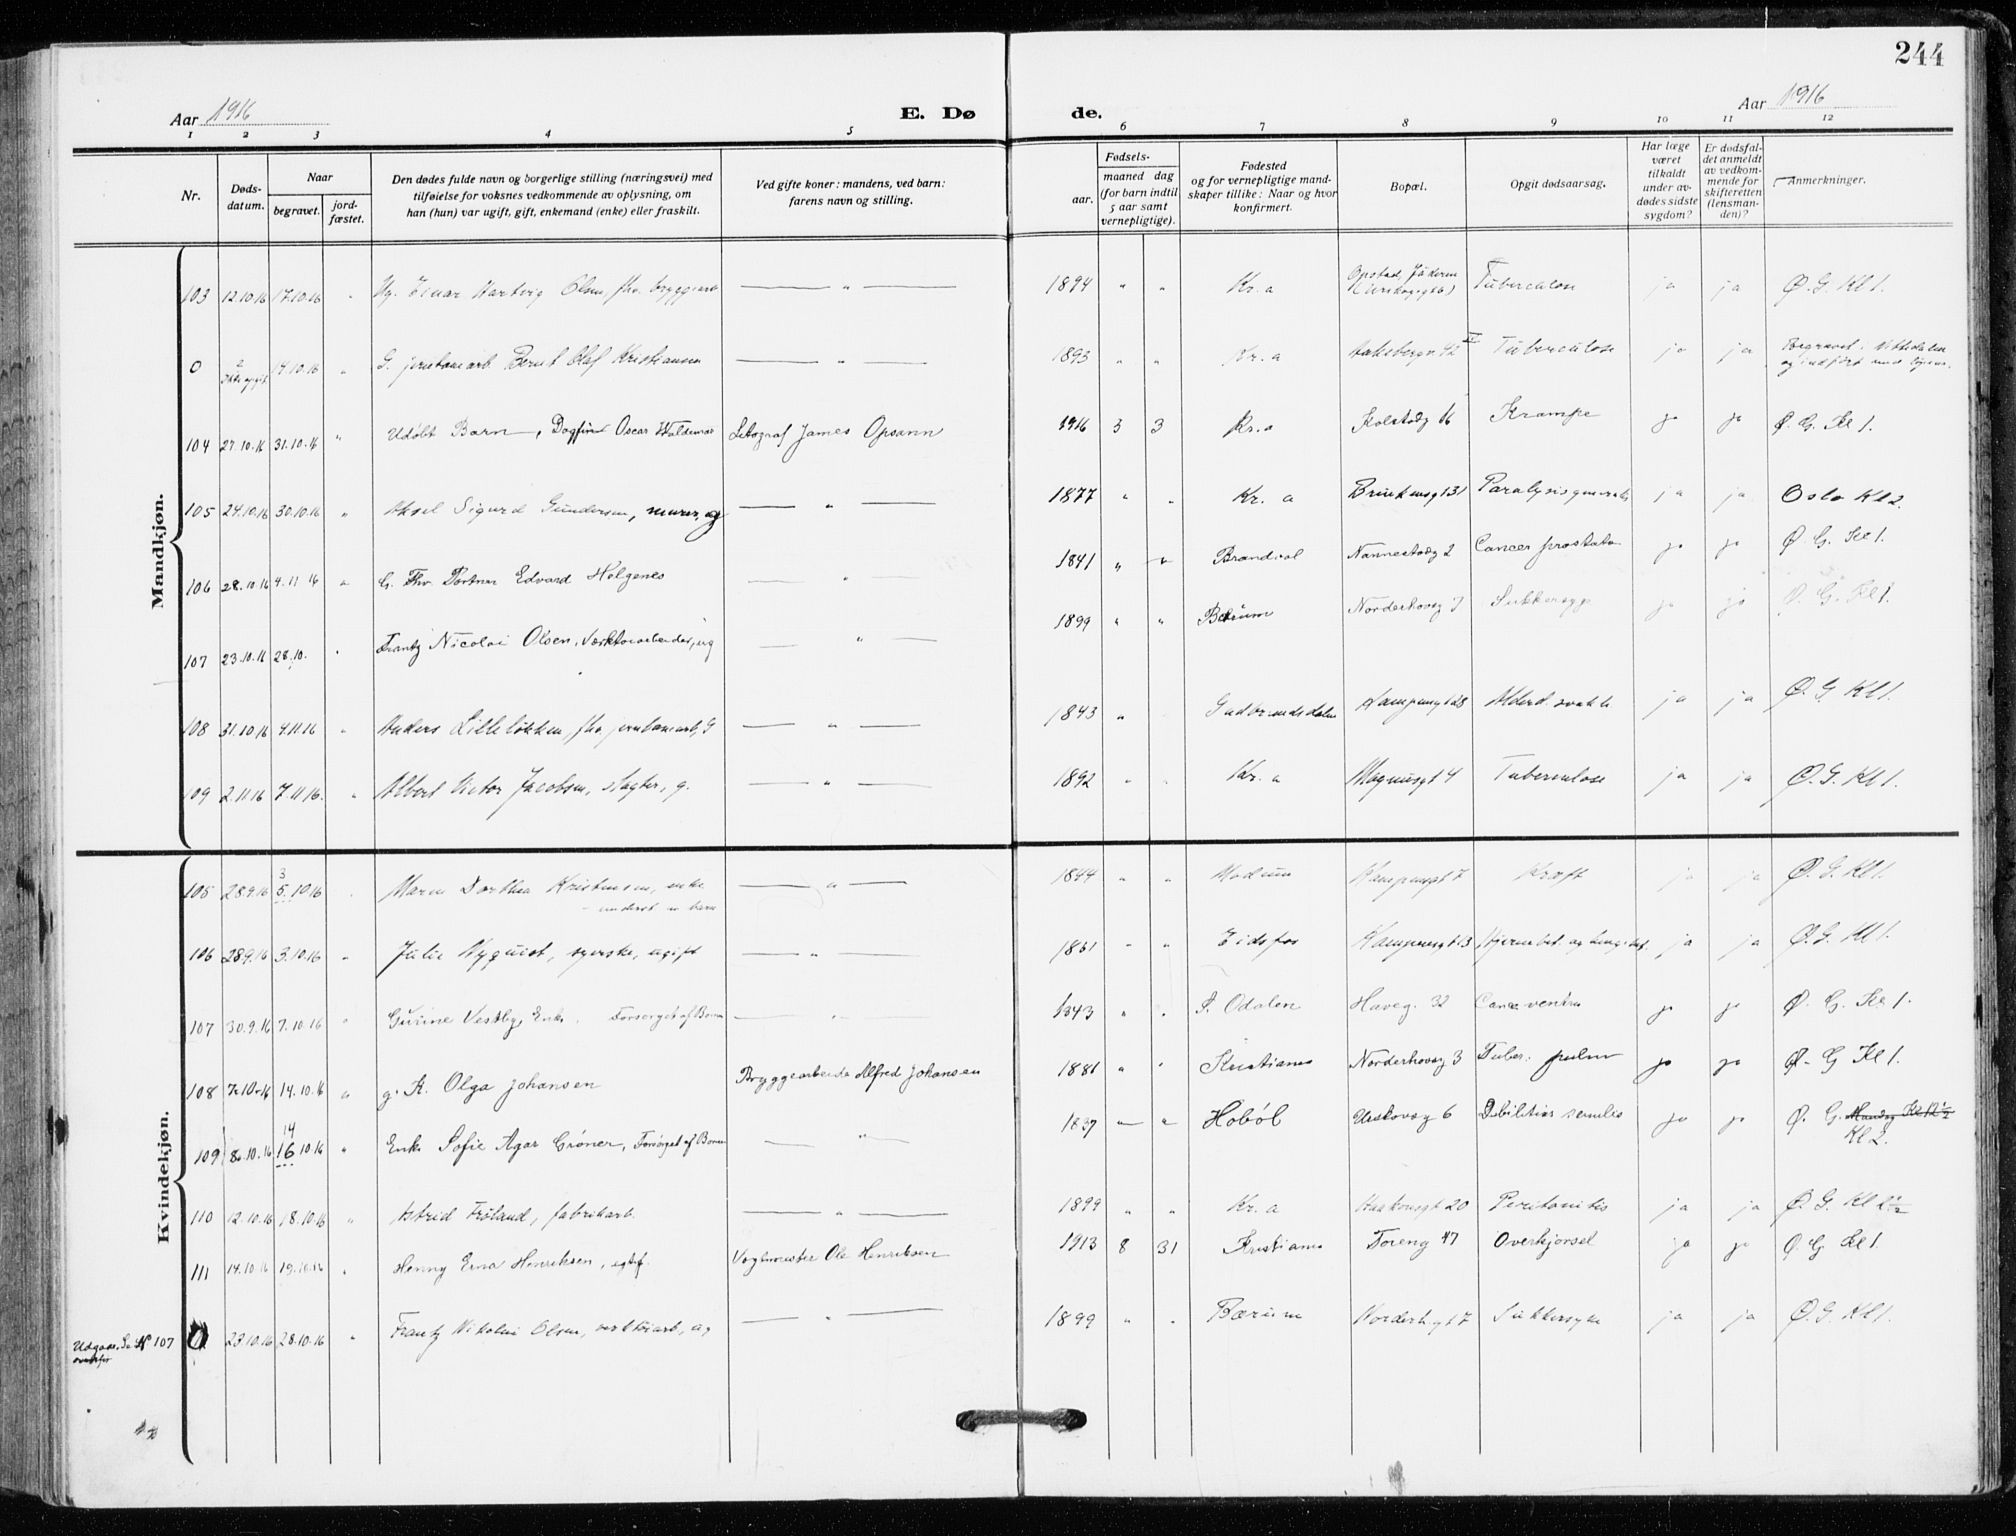 244
Aar 1916
E. Dø
de.
Aar 1916
1 2 3 4 5 6 7 8 9 10 11 12
Nr.
Døds-
datum.
Naar
begravet.
jord-
fæstet.
Den dødes fulde navn og borgerlige stilling (næringsvei) med
tilføielse for voksnes vedkommende av oplysning, om
han (hun) var ugift, gift, enkemand (enke) eller fraskilt.
Ved gifte koner: mandens, ved barn:
farens navn og stilling.
Fødsels-
aar.
maaned dag
(for barn indtil
5 aar samt
vernepligtige).
Fødested
og for vernepligtige mand-
skaper tillike: Naar og hvor
konfirmert.
Bopæl.
Opgit dødsaarsag.
Har læge
været
tilkaldt
under av-
dødes sidste
sygdom?
Er dødsfal-
det anmeldt
av vedkom-
mende for
skifteretten
(lensman-
den)?
Anmerkninger.
Mandkjøn.
103 12.10.16 17.10.16 " Ug. Einar Hartvig Olsen fhv. bryggeiarb — " — 1894 " " Kr.a Opstad, Jæderen Tuberculose ja ja Ø. G. Kl 1.
0 14.10.16 " G. jernbanearb Bernt Olaf Kristiansen — " — 1893 " " Kr. a 42 Tuberculose ja ja Begravet i Nittedalen
104 27.10.16 31.10.16 " Udøbt Barn, Dagfinn Oscar Waldemar Litograf James Opsann 1916 3 3 Kr.a Kolstadg 16 Krampe ja ja Ø. G. Kl 1.
105 24.10.16 30.10.16 " Aksel Sigurd Gundersen, murer, ug — " — 1877 " " Kr. a 131 Paralysis generalis ja ja Oslo Kl 2.
106 28.10.16 4.11 16 " G. Fhv. Portner Edvard Helgenes — " — 1841 " " Brandval Nannestadg 2 Cancer prostata ja ja Ø G. Kl 1.
107 23.10.16 28.10. " Frantz Nicolai Olsen, Værktøiarbeider, ug — " — 1899 " " Bærum Norderhovsg 7 Sukkersyge ja ja Ø. G. Kl 1.
108 31.10 16 4.11 16 " Anders Lilleløkken, fhv jernbanearb, G — " — 1843 " Gudbrandsdalen Kampengt 28 Alderd. svakh. ja ja Ø. G Kl 1.
109 2.11 16 7.11 16. " Albert Victor Jacobsen, slagter, g. — " — 1892 " " Kr. a Magnusgt 4 Tuberculose ja ja Ø. G. Kl 1.
Kvindekjøn.
105 28 9.16 3 5.10.16 Maren Dorthea Kristensen, enke — " — 1844 " " Modum Kampengt 7 Kræft ja ja Ø. G. Kl 1.
underst. av barn
106 28 9.16 3.10.16 " Julie Nyquist, syerske, ugift — " — 1861 " " Eidsfos Kampengt 13 Hjernebet. og lungebet. ja ja Ø. G. Kl 1.
107 30.9.16 7.10.16 " Gurine Vestby, Enke. Forsørget af Børn — " — 1843 " " S. Odalen Haveg. 32 Cancer ventri ja ja Ø. G. Kl 1.
108 7.10.16 14.10.16 " g. K. Olga Johansen Bryggearbeider Alfred Johansen 1881 " " Kristiania Norderhovsg 3 Tuber. pulm ja ja Ø. G Kl 1.
109 8.10.16 14 16 10.16 " Enke Sofie Agar Grøner, Forsørget af Børn — " — 1837 " " Hobøl Urskovsg 6 Debilitas senilis ja ja Ø. G. Mandag Kl 12 1/2
Kl 2.
110 12.10.16 18.10.16 " Astrid Frøland, fabrikarb. — " — 1899 " " Kr. a Haakonsgt 20 Peritonitis ja ja Ø. G. Kl 1 1/2
111 14.10 16 19.10.16 " Henny Erna Henriksen, egtef. Vognmester Ole Henriksen 1913 8 31 Kristiania Toreng 47 Overkjørsel ja ja Ø. G Kl 1.
Udgaar. Se N 107
ovenfor
0 23.10.16 28.10.16 " Frantz Nikolai Olsen, verktøiarb, ug — " — 1899 " " Bærum Norderh.gt 7 Sukkersyke ja ja Ø. G. Kl 1.